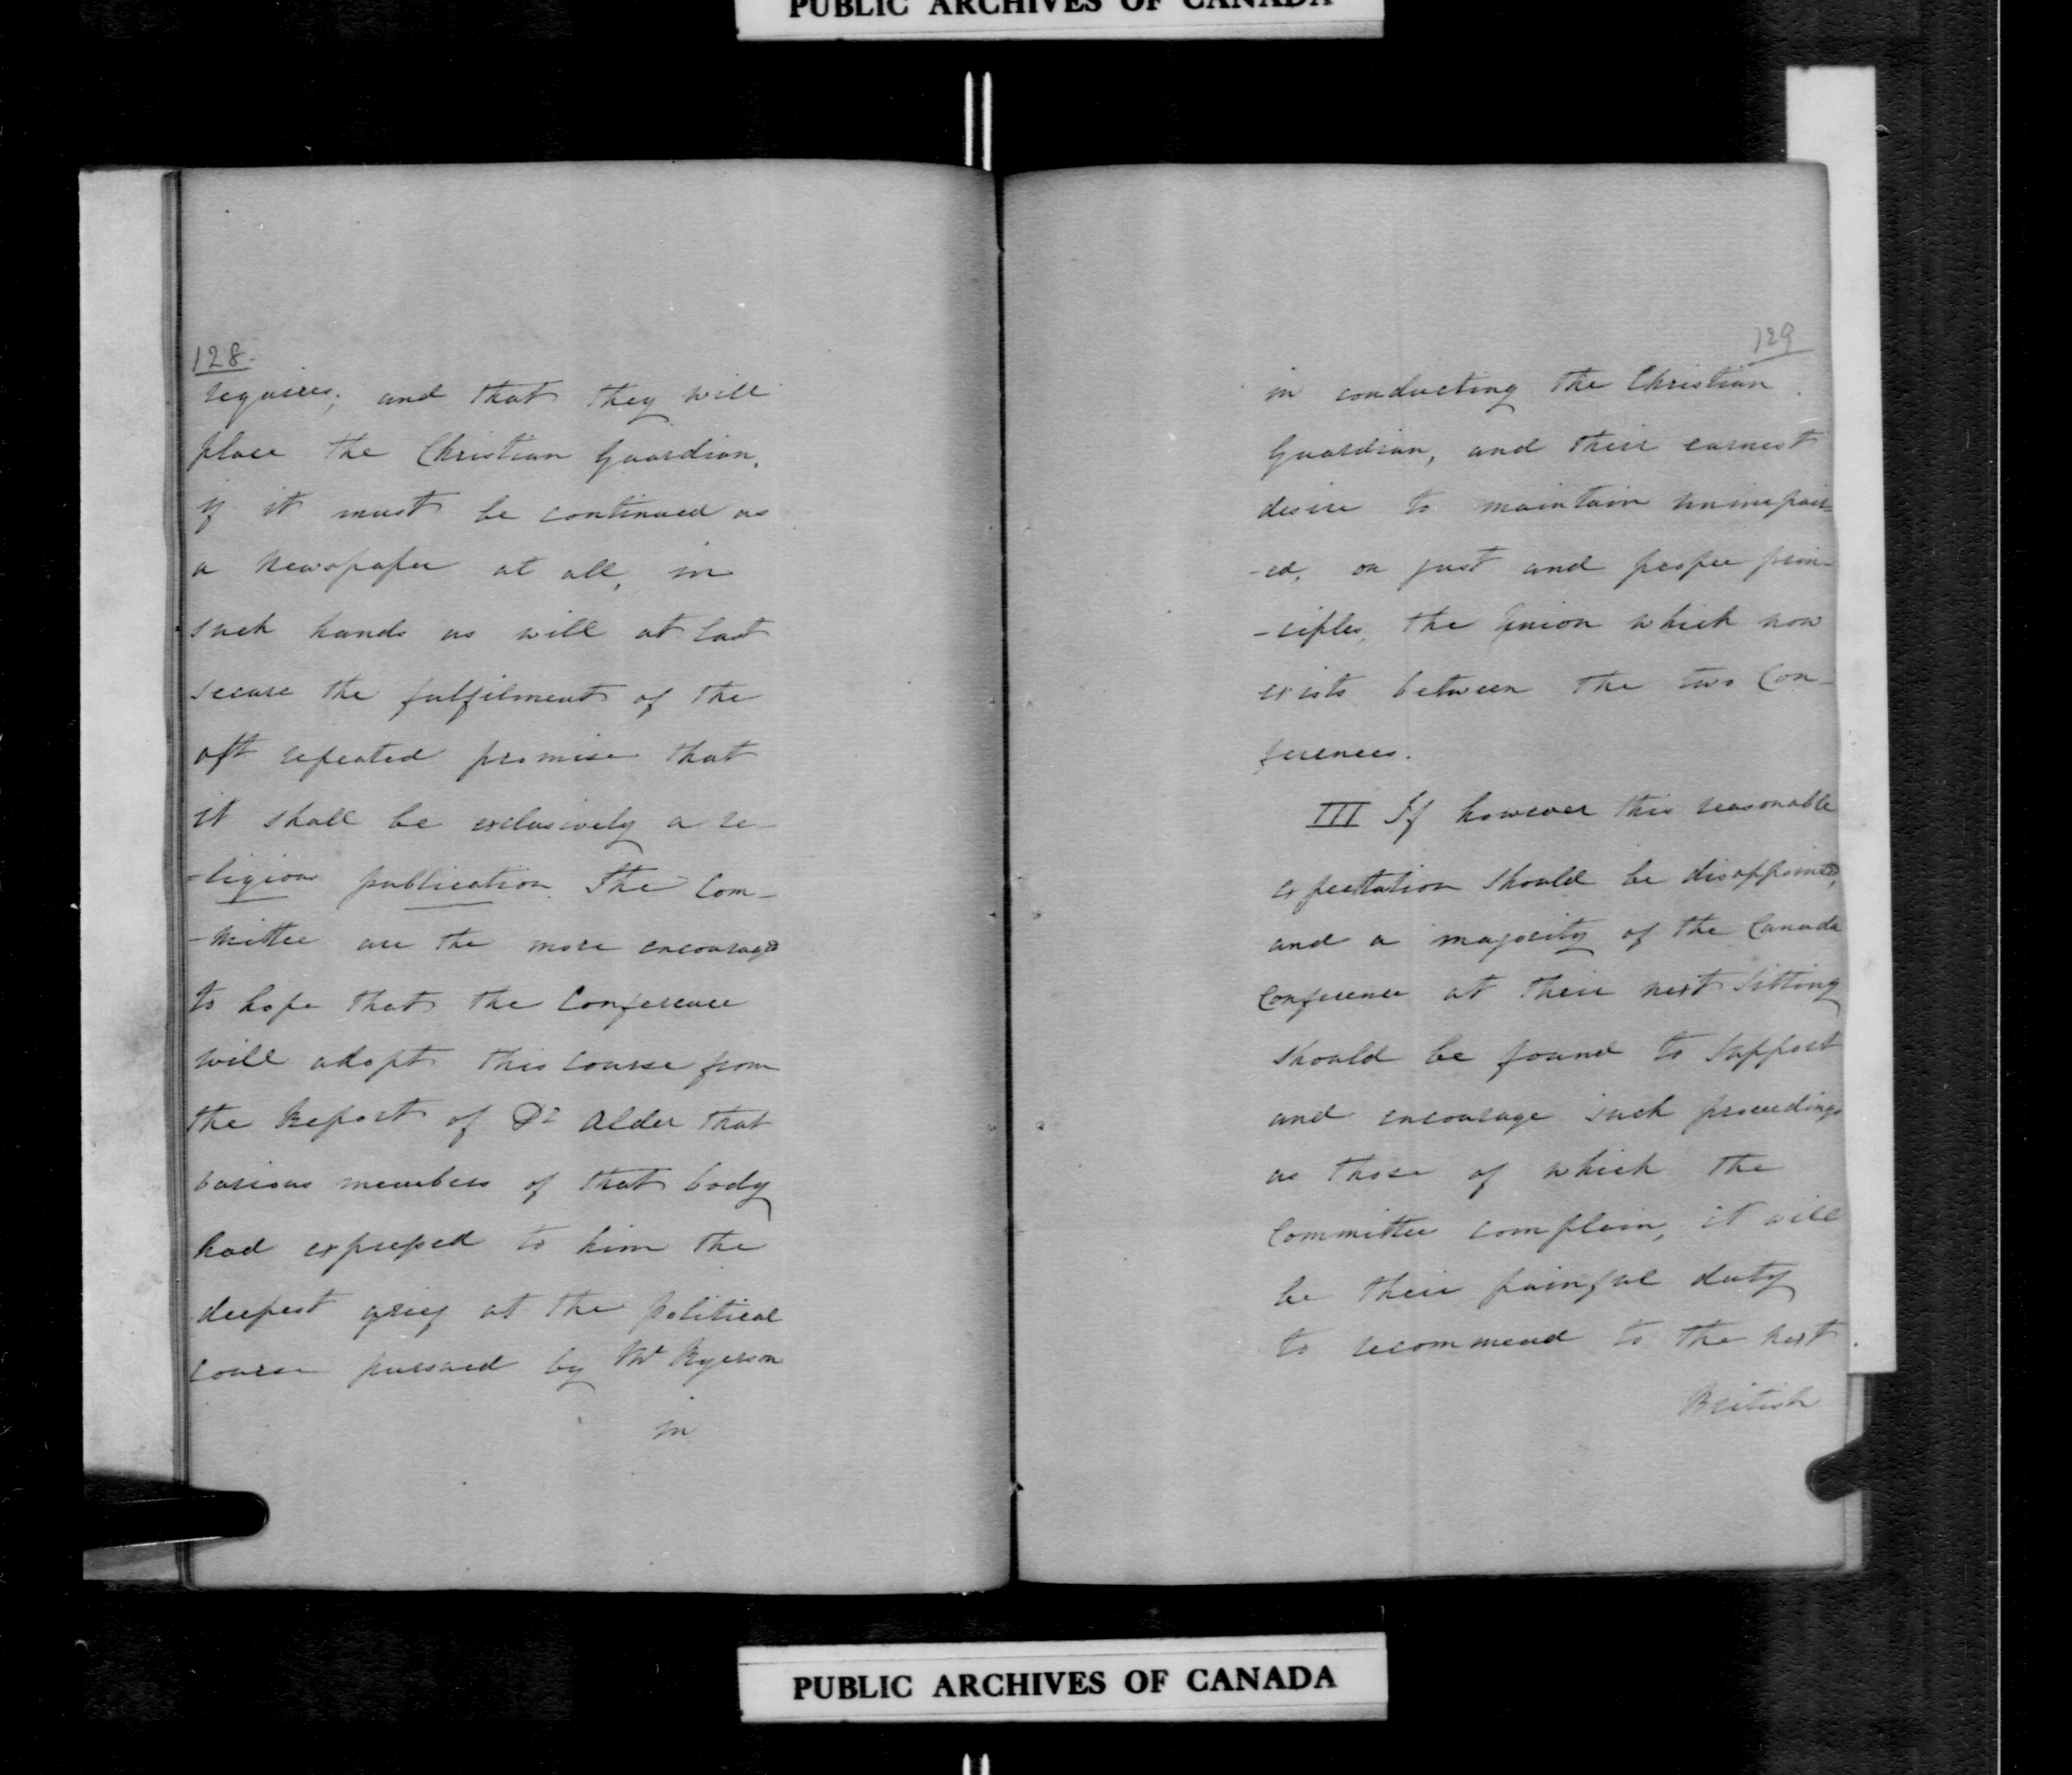 PUBLIC ARCHIVES OF CANADA
128.
requires; and that they will
place the Christian Guardian,
if it must be continued as
a Newspaper at all, in
such hands as will at last
secure the fulfilment of the
oft repeated promise that
it shall be exclusively a re-
-ligious publication. The Com-
-mittee are the more encouraged
to hope that the Conference
will adopt this course from
the Report of Dr Alder that
various members of that body
had expressed to him the
deepest grief at the political
course pursued by Mr Ryerson
in
129
in conducting the Christian
Guardian, and their earnest
desire to maintain unimpair-
-ed, on just and proper prin-
-ciples, the Union which now
exists between the two Con-
ferences.
III If however this reasonable
expectation should be disappointed,
and a majority of the Canada
Conference at their next Sitting
should be found to support
and encourage such proceedings
as those of which the
Committee complain, it will
be their painful duty
to recommend to the next
British
PUBLIC ARCHIVES OF CANADA